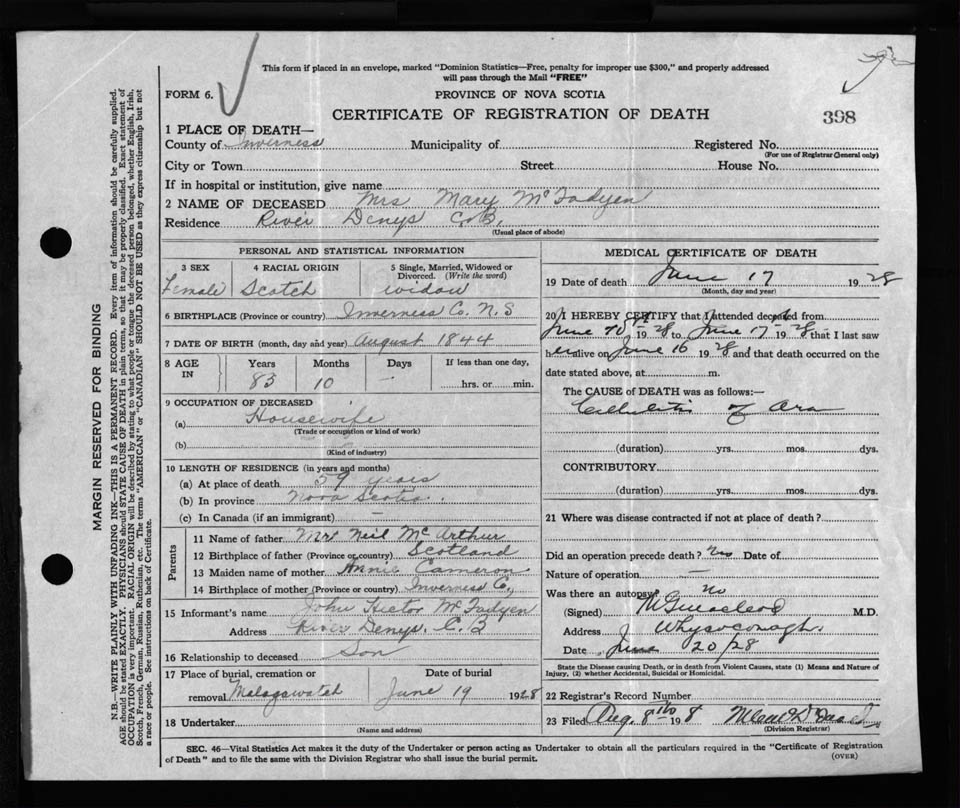 This form if placed in an envelope, marked "Dominion Statistics—Free, penalty for improper use $300," and properly addressed
will pass through the Mail "FREE"
FORM 6.
PROVINCE OF NOVA SCOTIA
CERTIFICATE OF REGISTRATION OF DEATH
398
1 PLACE OF DEATH—
County of Inverness Municipality of Registered No.
(For use of Registrar General only)
City or Town Street House No.
If in hospital or institution, give name
2 NAME OF DECEASED Mrs Mary McFadyen
Residence River Denys C.B.
(Usual place of abode)
PERSONAL AND STATISTICAL INFORMATION
3 SEX 4 RACIAL ORIGIN 5 Single, Married, Widowed or
Divorced. (Write the word)
Female Scotch widow
6 BIRTHPLACE (Province or country) Inverness Co. N.S
7 DATE OF BIRTH (month, day and year) August 1844
8 AGE IN Years Months Days If less than one day,
83 10 — hrs. or min.
9 OCCUPATION OF DECEASED
(a) Housewife
(Trade or occupation or kind of work)
(b)
(Kind of industry)
10 LENGTH OF RESIDENCE (in years and months)
(a) At place of death 59 years
(b) In province Nova Scotia.
(c) In Canada (if an immigrant) —
Parents
11 Name of father Mr Neil McArthur
12 Birthplace of father (Province or country) Scotland
13 Maiden name of mother Annie Cameron
14 Birthplace of mother (Province or country) Inverness Co,
15 Informant's name John Hector McFadyen
Address River Denys. C.B
16 Relationship to deceased Son
17 Place of burial, cremation or Date of burial
removal Malagawatch June 19 1928
18 Undertaker
(Name and address)
MEDICAL CERTIFICATE OF DEATH
19 Date of death June 17 1928
(Month, day and year)
20 I HEREBY CERTIFY that I attended deceased from
June 10th 1928 to June 17th 1928, that I last saw
her alive on June 16 1928 and that death occurred on the
date stated above, at m.
The CAUSE of DEATH was as follows:
Cellulitis of Arm
(duration) yrs. mos. dys.
CONTRIBUTORY
(duration) yrs. mos. dys.
21 Where was disease contracted if not at place of death?
Did an operation precede death? Date of
Nature of operation —
Was there an autopsy? no
(Signed) Macleod M.D.
Address Whycocomagh.
Date June 20/28
State the Disease causing Death, or in death from Violent Causes, state (1) Means and Nature of
Injury, (2) whether Accidental, Suicidal or Homicidal.
22 Registrar's Record Number
23 Filed Aug. 8th 198
(Division Registrar)
SEC. 46—Vital Statistics Act makes it the duty of the Undertaker or person acting as Undertaker to obtain all the particulars required in the "Certificate of Registration
of Death" and to file the same with the Division Registrar who shall issue the burial permit.
(OVER)
MARGIN RESERVED FOR BINDING
N.B.—WRITE PLAINLY WITH UNFADING INK—THIS IS A PERMANENT RECORD. Every item of information should be carefully supplied.
AGE should be stated EXACTLY. PHYSICIANS should STATE CAUSE OF DEATH in plain terms, so that it may be properly classified. Exact statement of
OCCUPATION is very important. RACIAL ORIGIN will be described by stating to what people or tongue the deceased person belonged, whether English, Irish,
Scotch, French, German, Russian, Ruthenian, etc. The terms "AMERICAN" or "CANADIAN" SHOULD NOT BE USED as they express citizenship but not
a race or people. See instructions on back of Certificate.